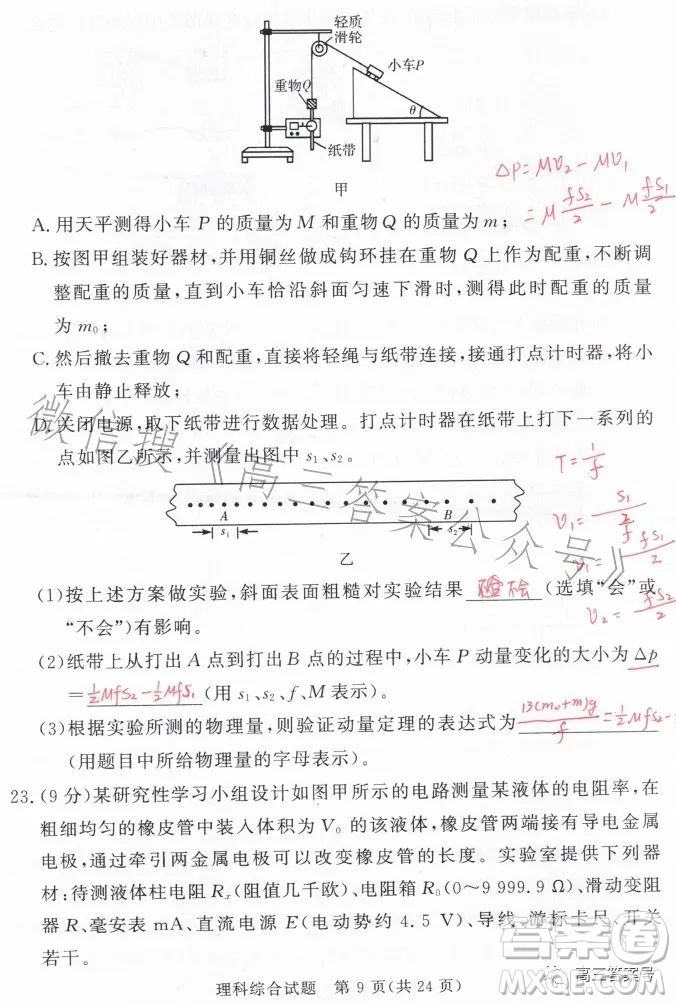 轻质
滑轮
小车P
重物Q
θ
纸带
甲
ΔP=MV₂-MV₁
=M fS₂/2 - M fS₁/2
A. 用天平测得小车 P 的质量为 M 和重物 Q 的质量为 m；
B. 按图甲组装好器材，并用铜丝做成钩环挂在重物 Q 上作为配重，不断
调整配重的质量，直到小车恰沿斜面匀速下滑，测得此时配重的质量
为 m₀；
C. 然后撤去重物 Q 和配重，直接将轻绳与纸带连接，接通打点计时器，将小
车由静止释放；
D. 关闭电源，取下纸带进行数据处理。打点计时器在纸带上打下一系列的
点如图乙所示，并测量出图中 s₁、s₂。
T=1/f
A
B
s₁
s₂
乙
V₁= fS₁/2
V₂= fS₂/2
(1)按上述方案做实验，斜面表面粗糙对实验结果（选填“会”或
“不会”)有影响。
(2)纸带上从打出 A 点到打出 B 点的过程中，小车 P 动量变化的大小为 Δp
= ½MfS₂-½MfS₁ (用 s₁、s₂、f、M 表示)。
(3)根据实验所测的物理量，则验证动量定理的表达式为 13(m₀+m)g/f =½MfS₂-
(用题目中所给物理量的字母表示)。
23. (9 分)某研究性学习小组设计如图甲所示的电路测量某液体的电阻率，在
粗细均匀的橡皮管中装入体积为 V₀ 的该液体，橡皮管两端接有导电金属
电极，通过牵引两金属电极可以改变橡皮管的长度。实验室提供下列器
材：待测液体柱电阻 Rₓ(阻值几千欧)、电阻箱 R₀(0～9 999.9 Ω)、滑动变阻
器 R、毫安表 mA、直流电源 E(电动势约 4.5 V)、导线、游标卡尺、开关
若干。
理科综合试题 第 9 页(共 24 页)
微信搜《高三答案公众号》
答案圈
高三答案号